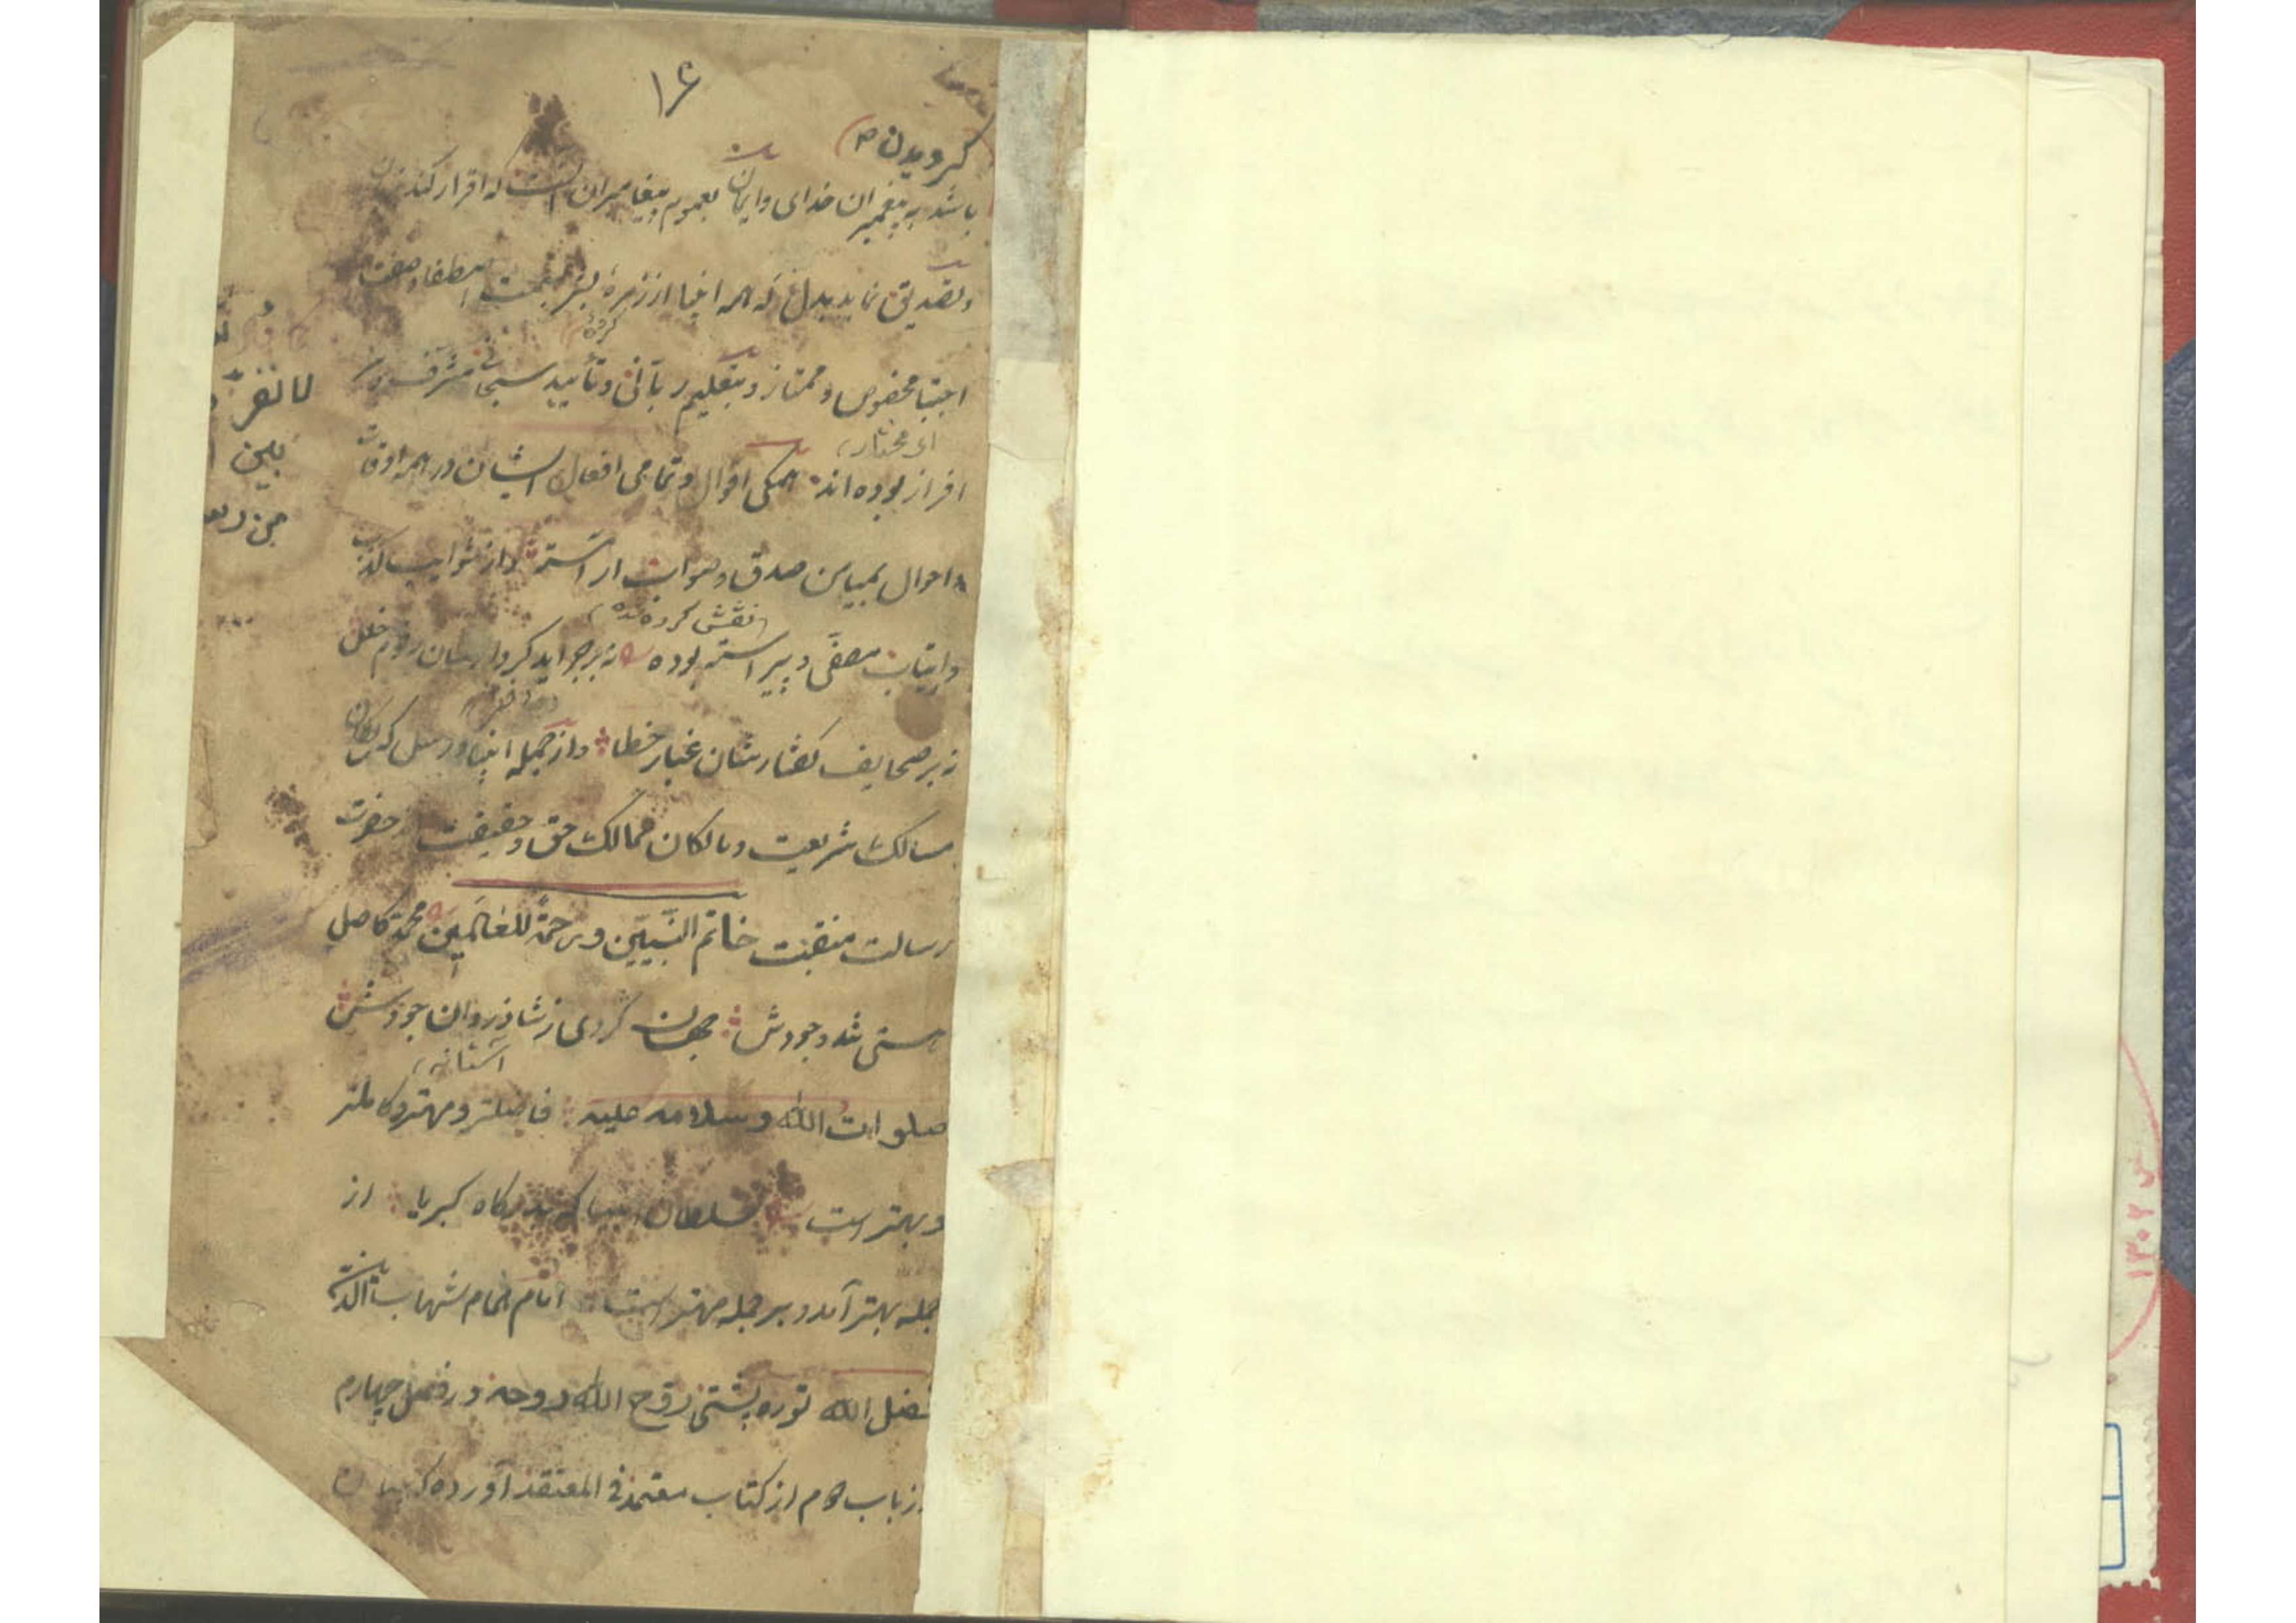 ۱۶
گرویدن
باشد به پیغمبران خدای و ایمان بعموم پیغامبران آنست که اقرار کند بزبان
و تصدیق نماید بدل که همه انبیا از زمرهٔ بشر بنعمت اصطفا و صفت
گروه
اجتبا مخصوص و ممتاز و بتعلیم ربانی و تأیید سبحانی مشرف و سر
ای مختار
افراز بوده اند همگی اقوال و تمامی افعال ایشان در همه اوقات
و احوال بمیامن صدق و صواب آراسته و از شوایب کذب
نقش کرده شده
و ارتیاب مصفی و پیراسته بوده نه بر جراید کردارشان رقوم خلل
نه بر صحایف گفتارشان غبار خطا و از جمله انبیا و رسل که سالکان
مسالک شریعت و مالکان ممالک حق و حقیقت حضرت
رسالت منقبت خاتم النبیین ورحمة للعالمین محمد کاصل
هستی شد وجودش جهان گردی ز شادروان جودش
آستانه
صلوات الله وسلامه علیه فاضلتر و مهتر و کاملتر
و بهتر است سلطان انبیا که بدرگاه کبریا از
جمله بهتر آمد و بر جمله مهتر است امام همام شهاب الدین
فضل الله توره پشتی روح الله روحه در فصل چهارم
از باب دوم از کتاب معتمد فی المعتقد آورده که
لا نفرق
بین
من رسله
۱۳۰۲